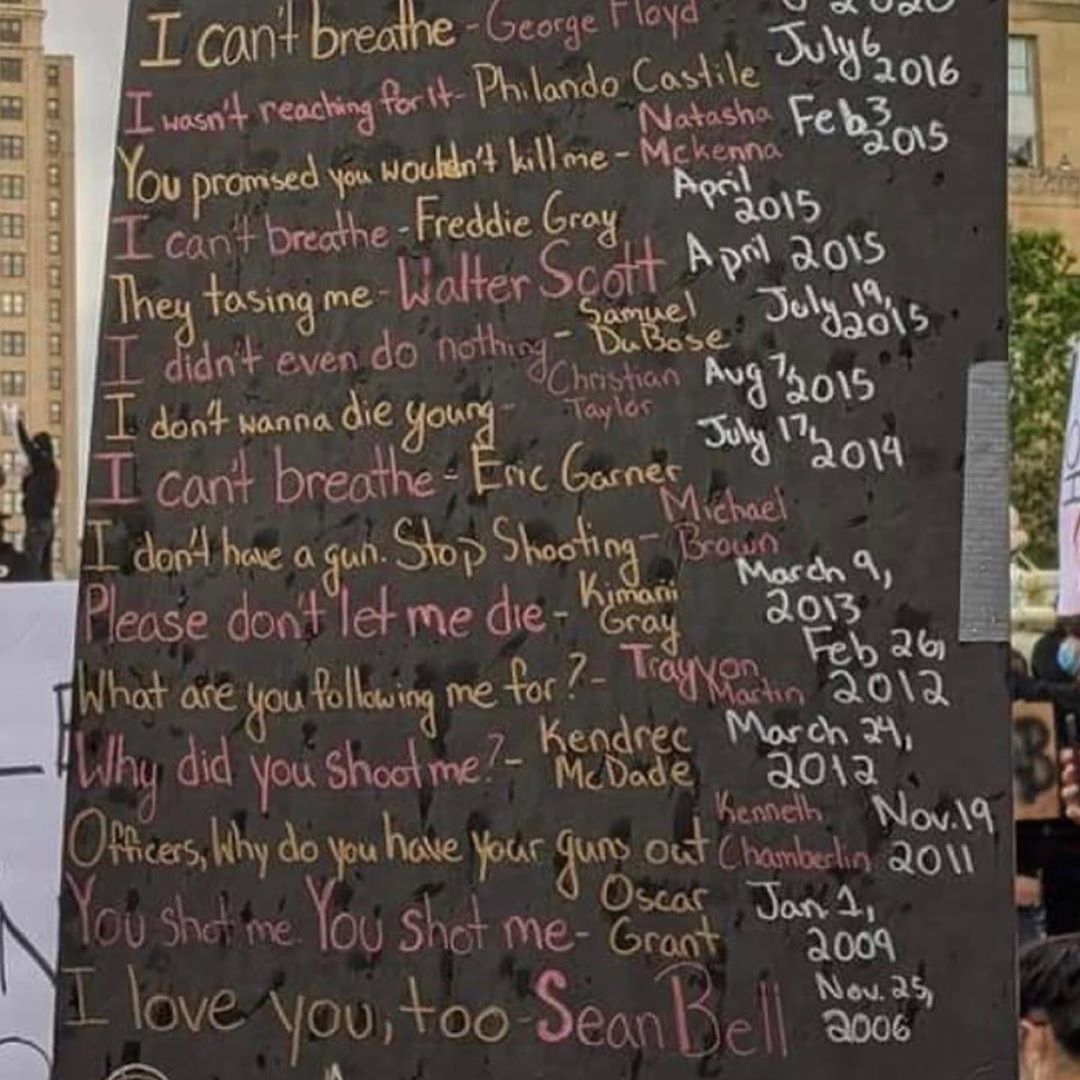 I can't breathe - George Floyd 2020
I wasn't reaching for it - Philando Castile July 6 2016
You promised you wouldn't kill me - Natasha Mckenna Feb 3 2015
I can't breathe - Freddie Gray April 2015
They tasing me - Walter Scott April 2015
I didn't even do nothing - Samuel DuBose July 19, 2015
I don't wanna die young - Christian Taylor Aug 7, 2015
I can't breathe - Eric Garner July 17, 2014
I don't have a gun. Stop Shooting - Michael Brown
Please don't let me die - Kimani Gray March 9, 2013
What are you following me for? - Trayvon Martin Feb 26, 2012
Why did you shoot me? - Kendrec McDade March 24, 2012
Officers, Why do you have your guns out Kenneth Chamberlin Nov. 19 2011
You shot me. You shot me - Oscar Grant Jan 1, 2009
I love you, too - Sean Bell Nov. 25, 2006